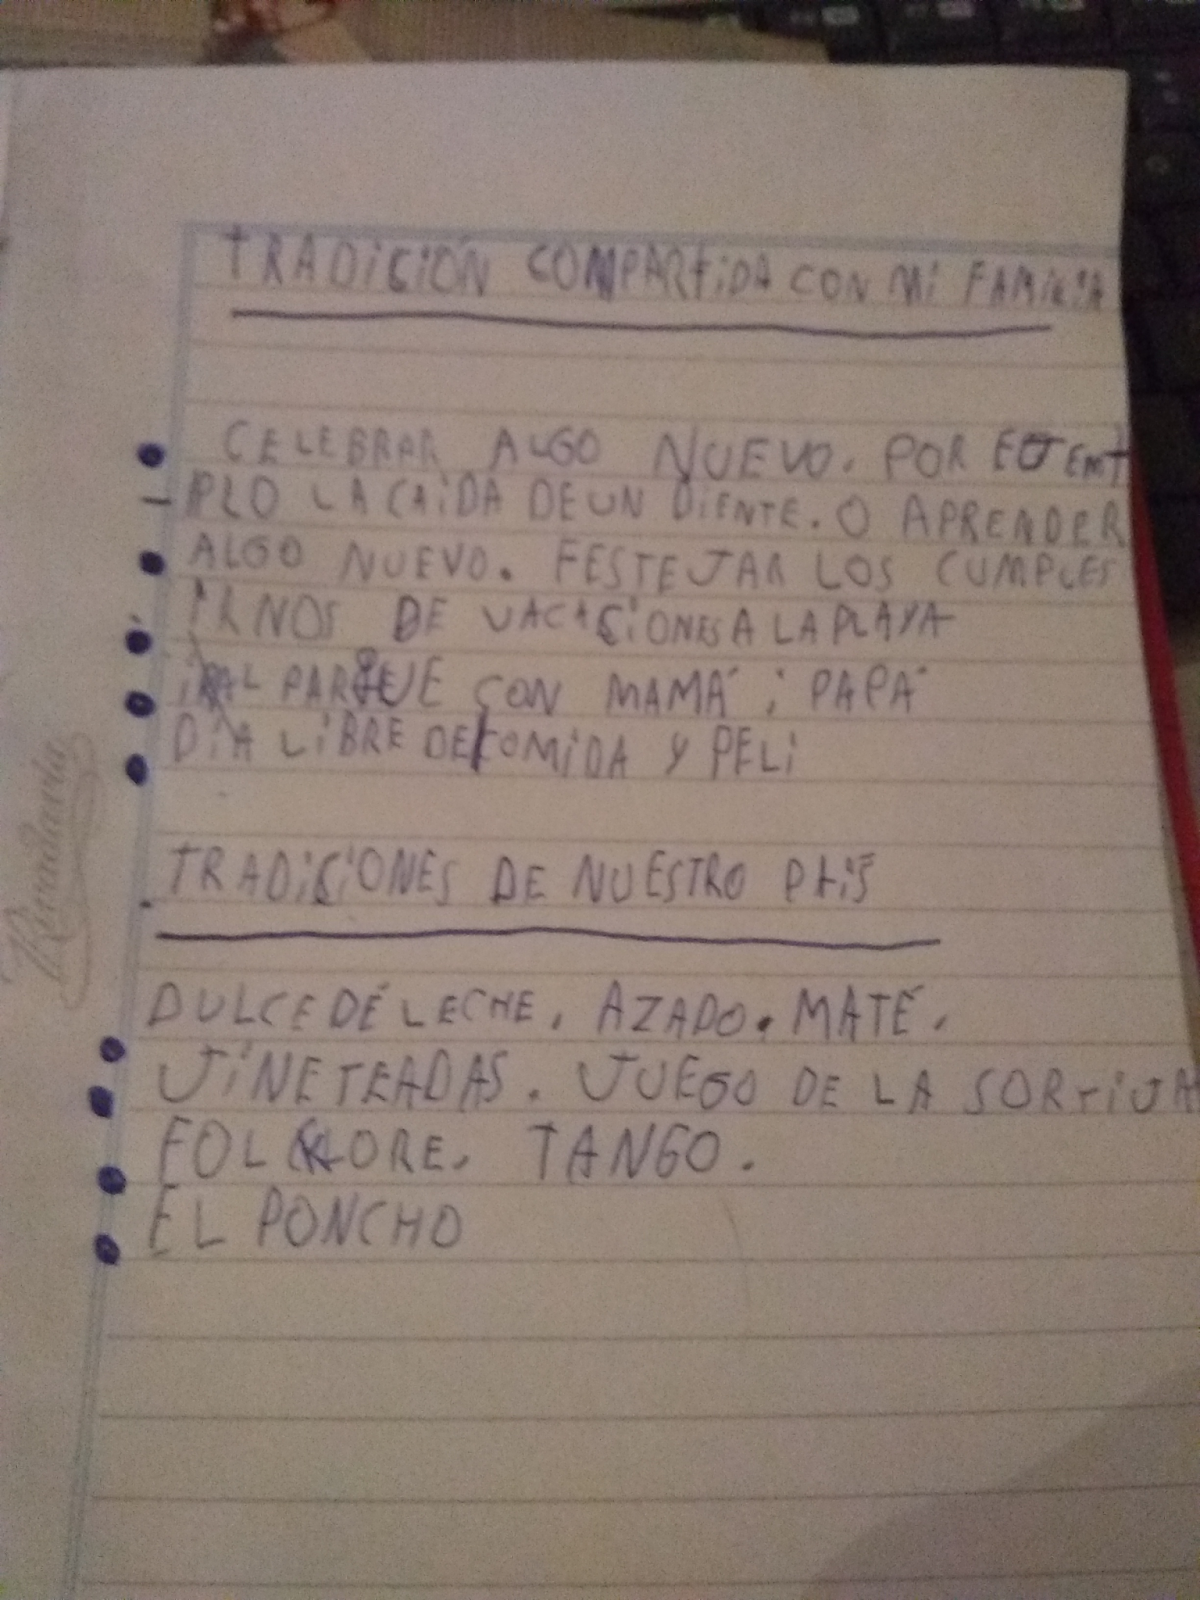 TRADICIÓN COMPARTIDA CON MI FAMILIA
CELEBRAR ALGO NUEVO. POR EJEM
PLO LA CAIDA DE UN DIENTE. O APRENDER
ALGO NUEVO. FESTEJAR LOS CUMPLES
IRNOS DE VACACIONES A LA PLAYA
IR AL PARQUE CON MAMÁ i PAPÁ
DÍA LIBRE DE COMIDA Y PELI
TRADICIONES DE NUESTRO PAÍS
DULCE DE LECHE. AZADO. MATE.
JINETEADAS. JUEGO DE LA SORTIJA
FOLKLORE. TANGO.
EL PONCHO
Rivadavia